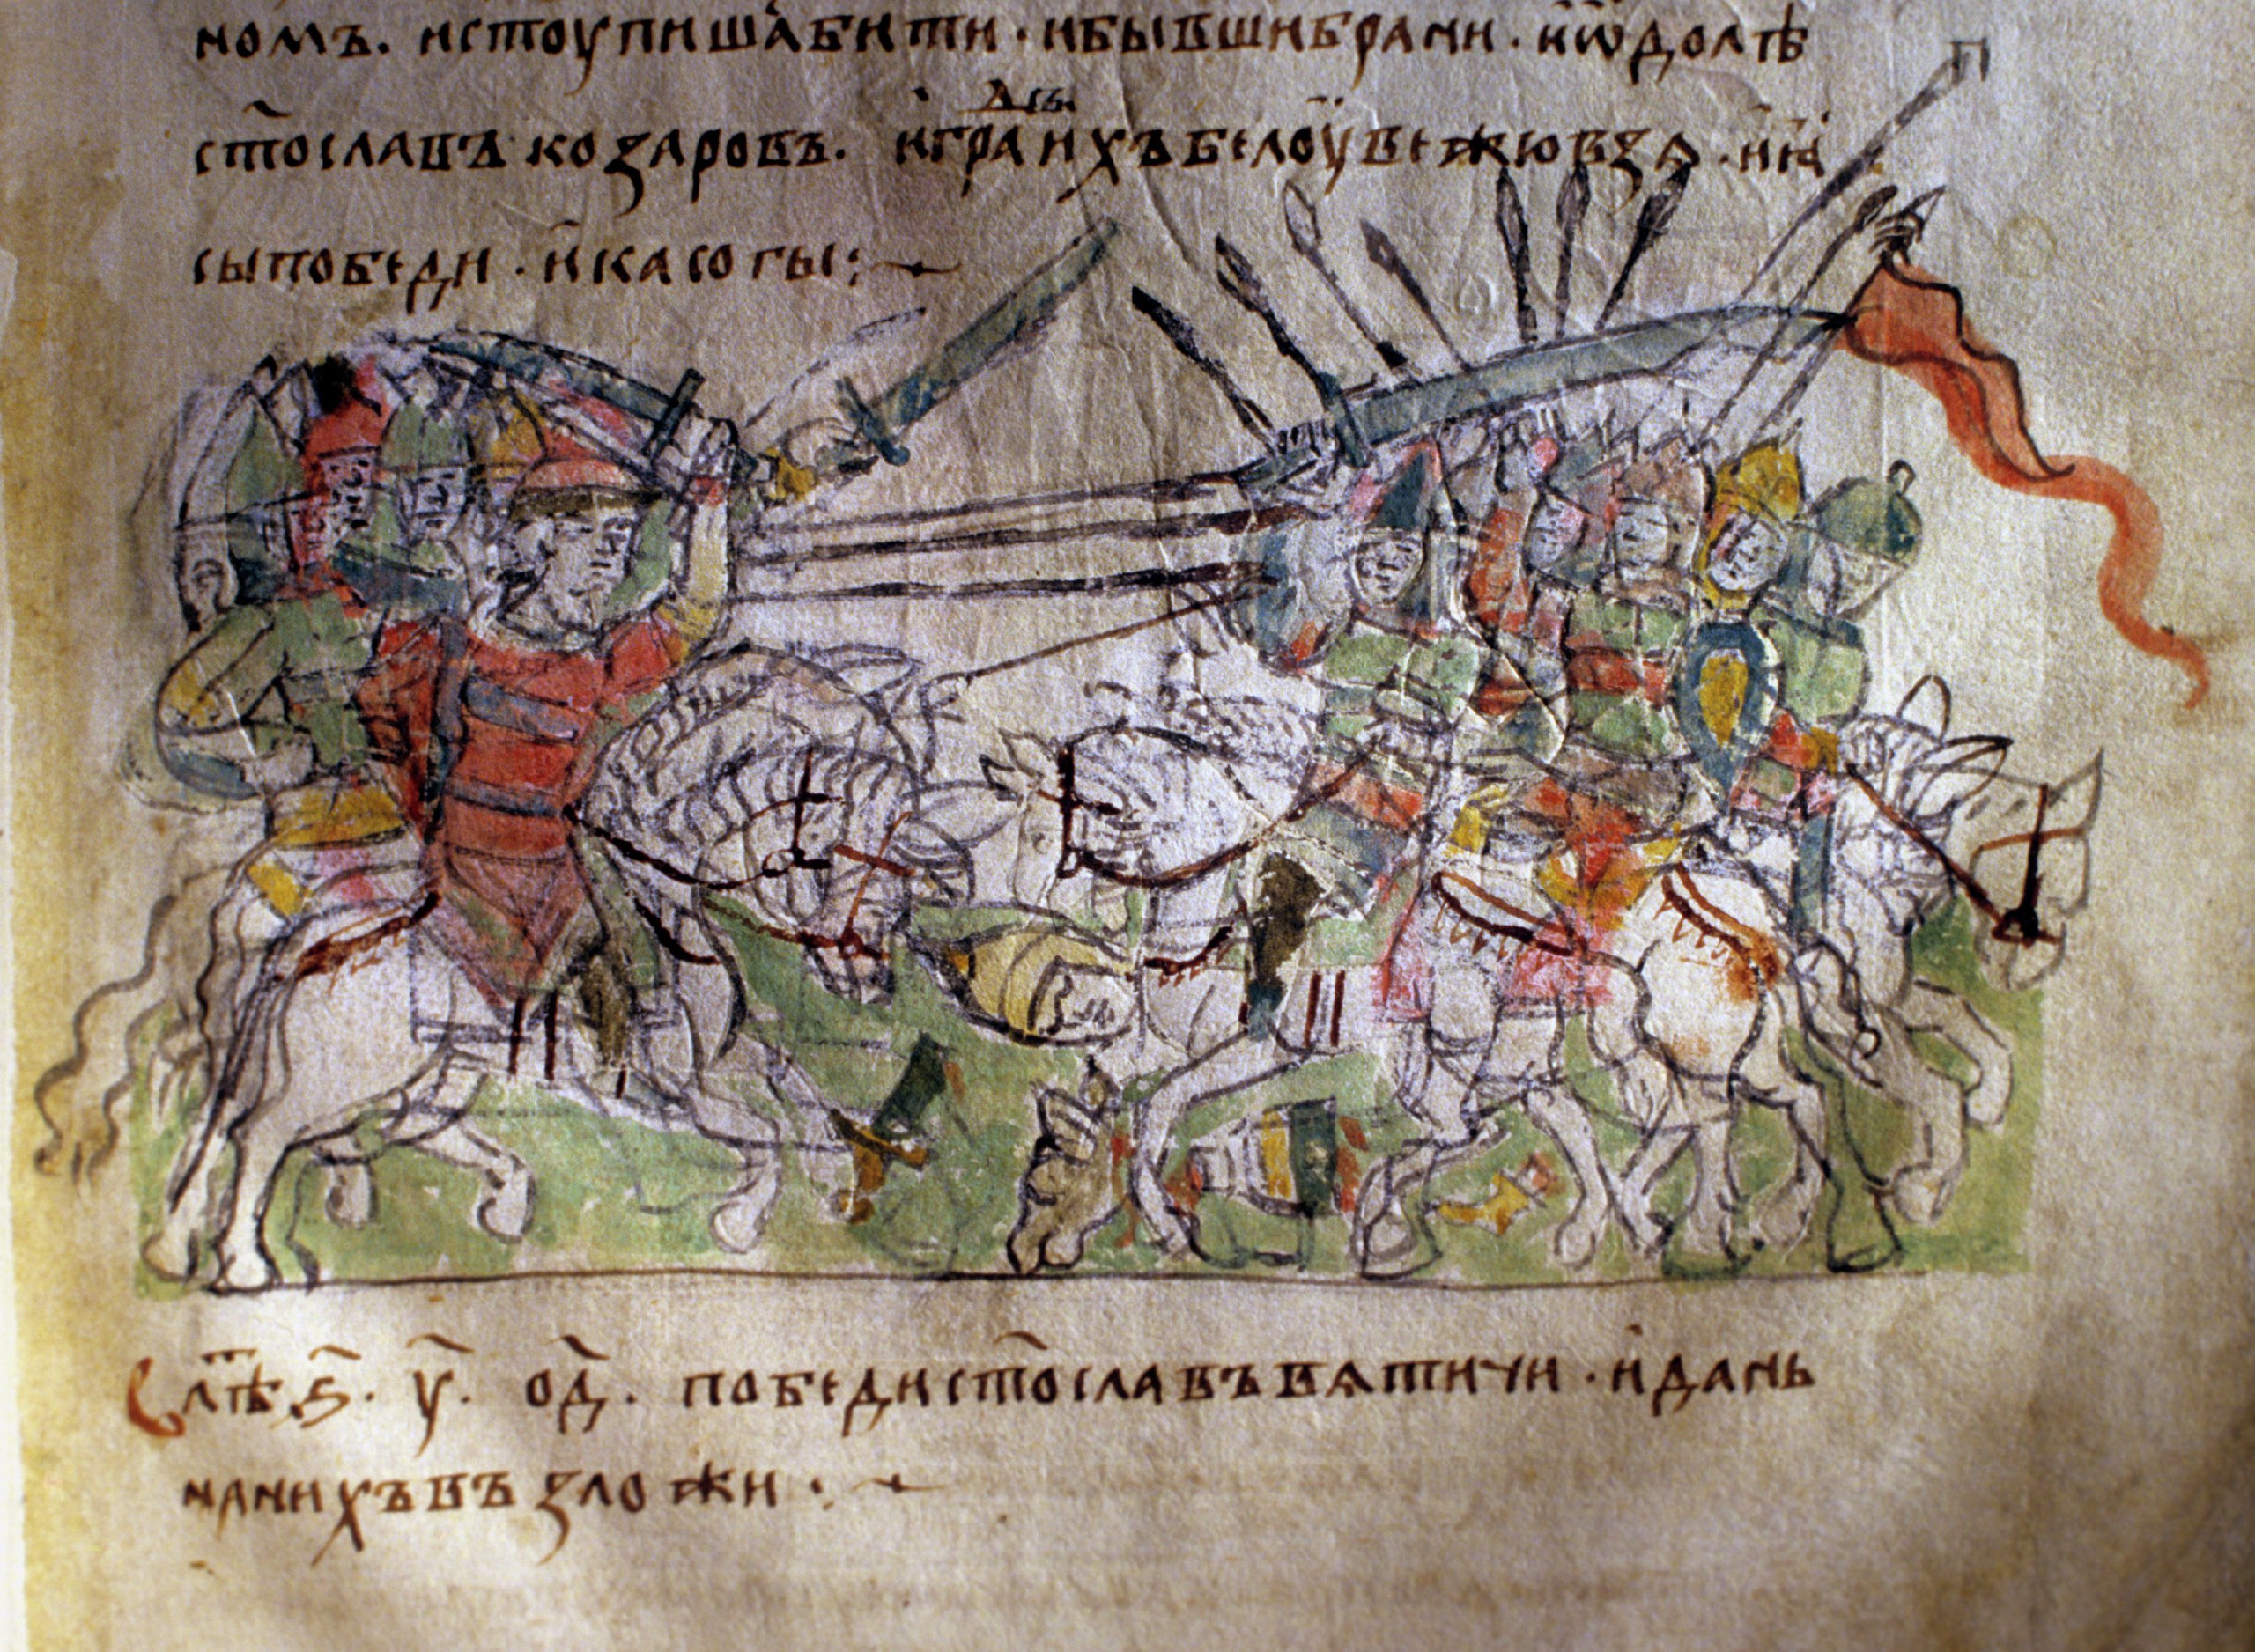 номъ. истоупишѧ битии · и бывши брани · и ѿдолѣ
ст҃ославъ козаровъ. и градъ ихъ белоу вежю взѧ · и ꙗ
сы победи · и касогы :~
В лѣ҃т ҂ѕ҃. у҃. од҃. победи ст҃ославъ вѧтичи · и дань
на нихъ възложи :~